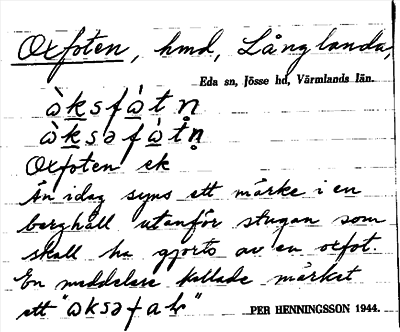 Oxfoten, hmd, Långlanda,
Eda sn, Jösse hd, Värmlands län.
ὼksfὼtn̥
ὼksəfὼtn̥
Oxfoten ek
Än idag syns ett märke i en
berghäll utanför stugan som
skall ha gjorts av en oxfot.
En meddelare kallade märket
ett "ωksəfat"
PER HENNINGSSON 1944.